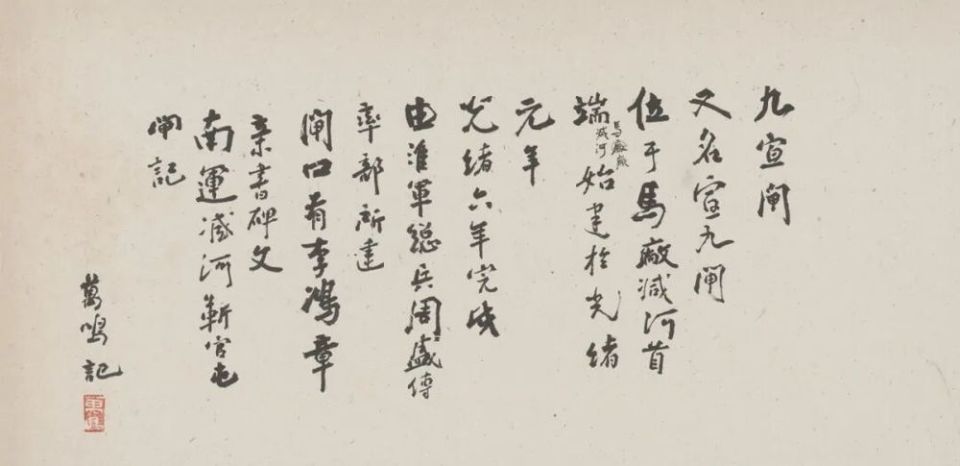 九宣闸
又名宣九闸
位于馬廠減河首
端始建於光緒
馬廠減河
元年
光緒六年完成
由淮軍總兵周盛傳
率部所建
閘口有李鴻章
親書碑文
南運減河靳官屯
閘記
萬鳴記